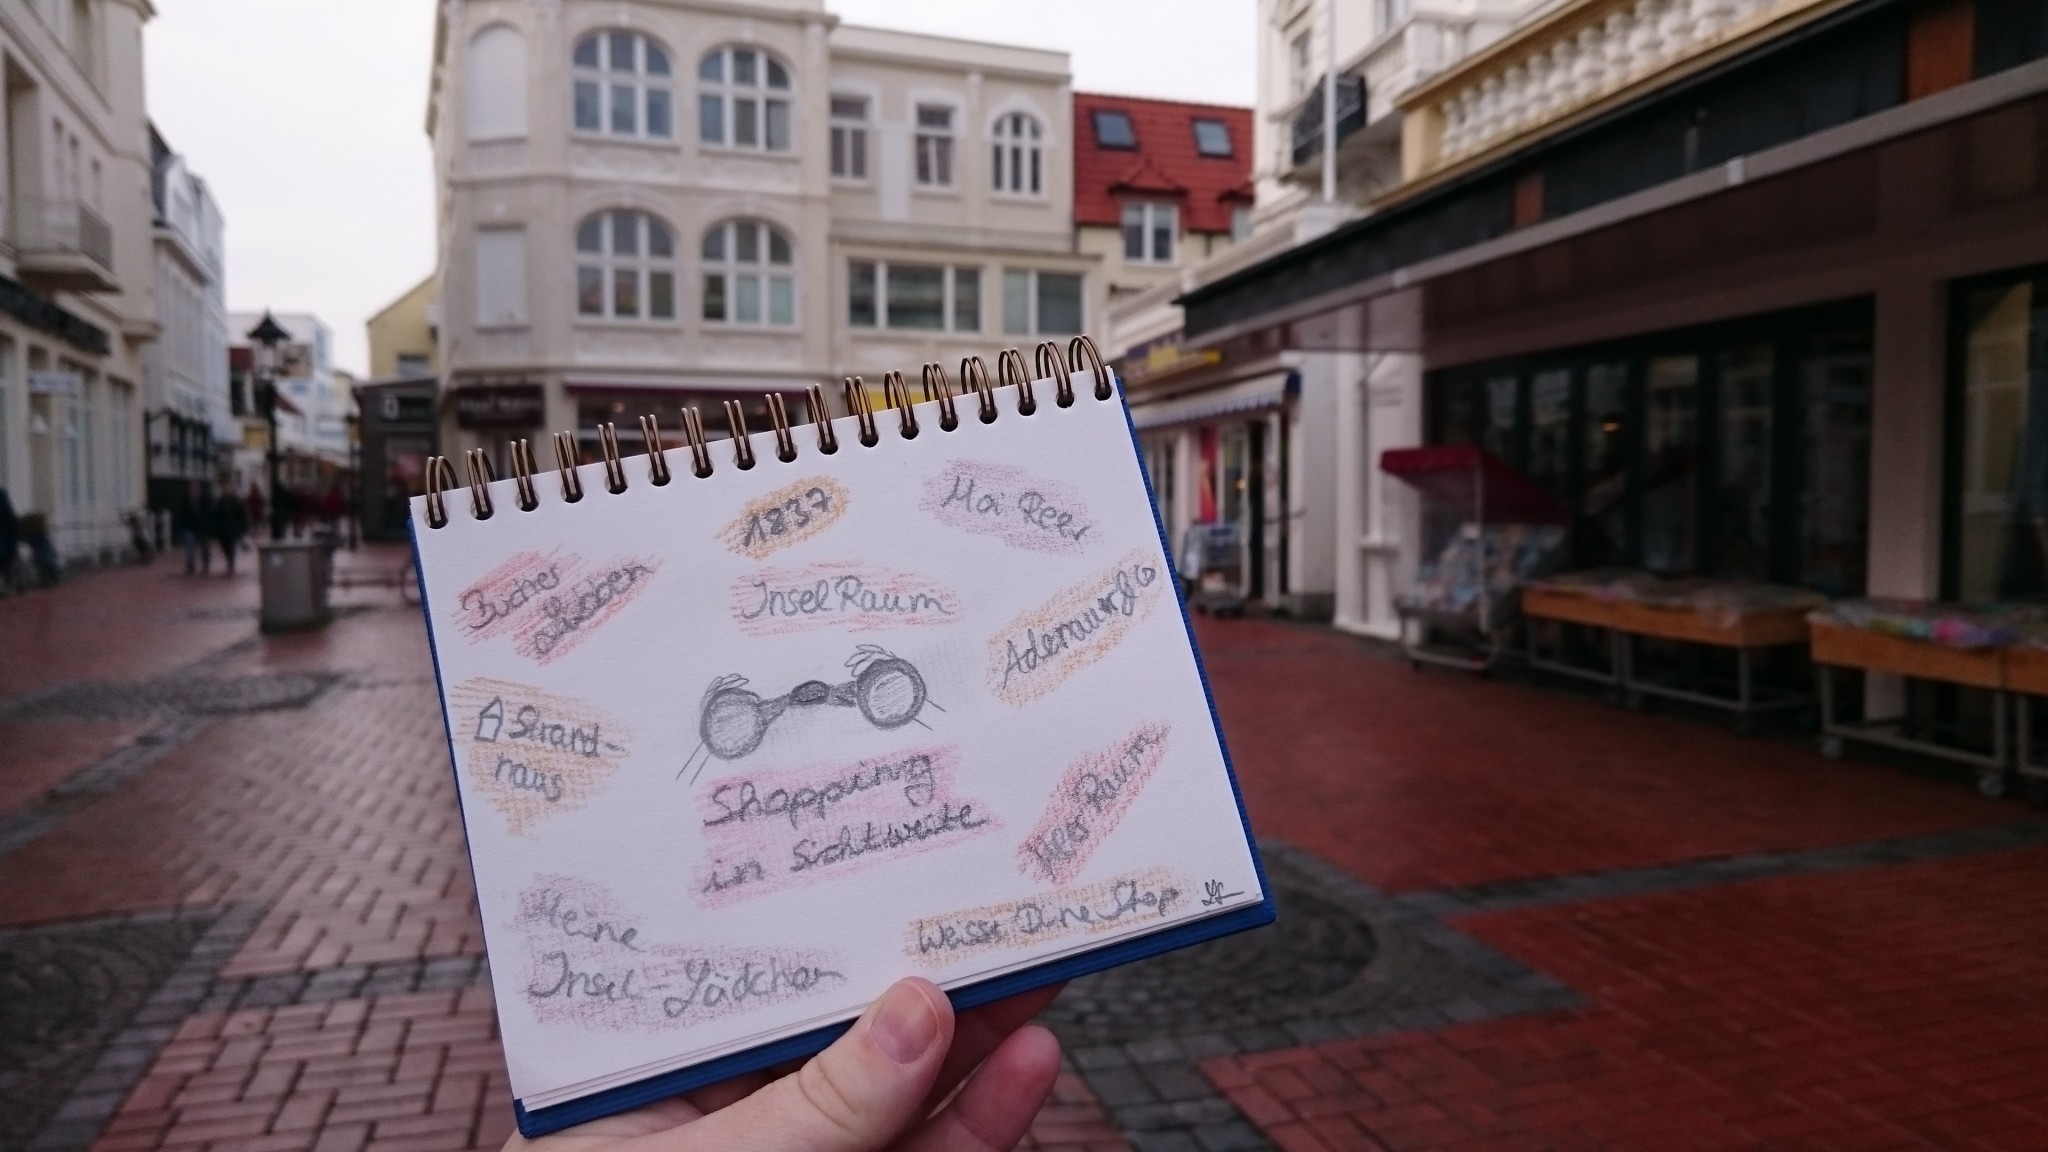 1837
Mai Reer
Bücher
Stübben
InselRaum
Adenauer&Co
Strand-
haus
Shopping
in Sichtweite
Meer Raum
Meine
Insel-Lädchen
Weisse Düne Shop